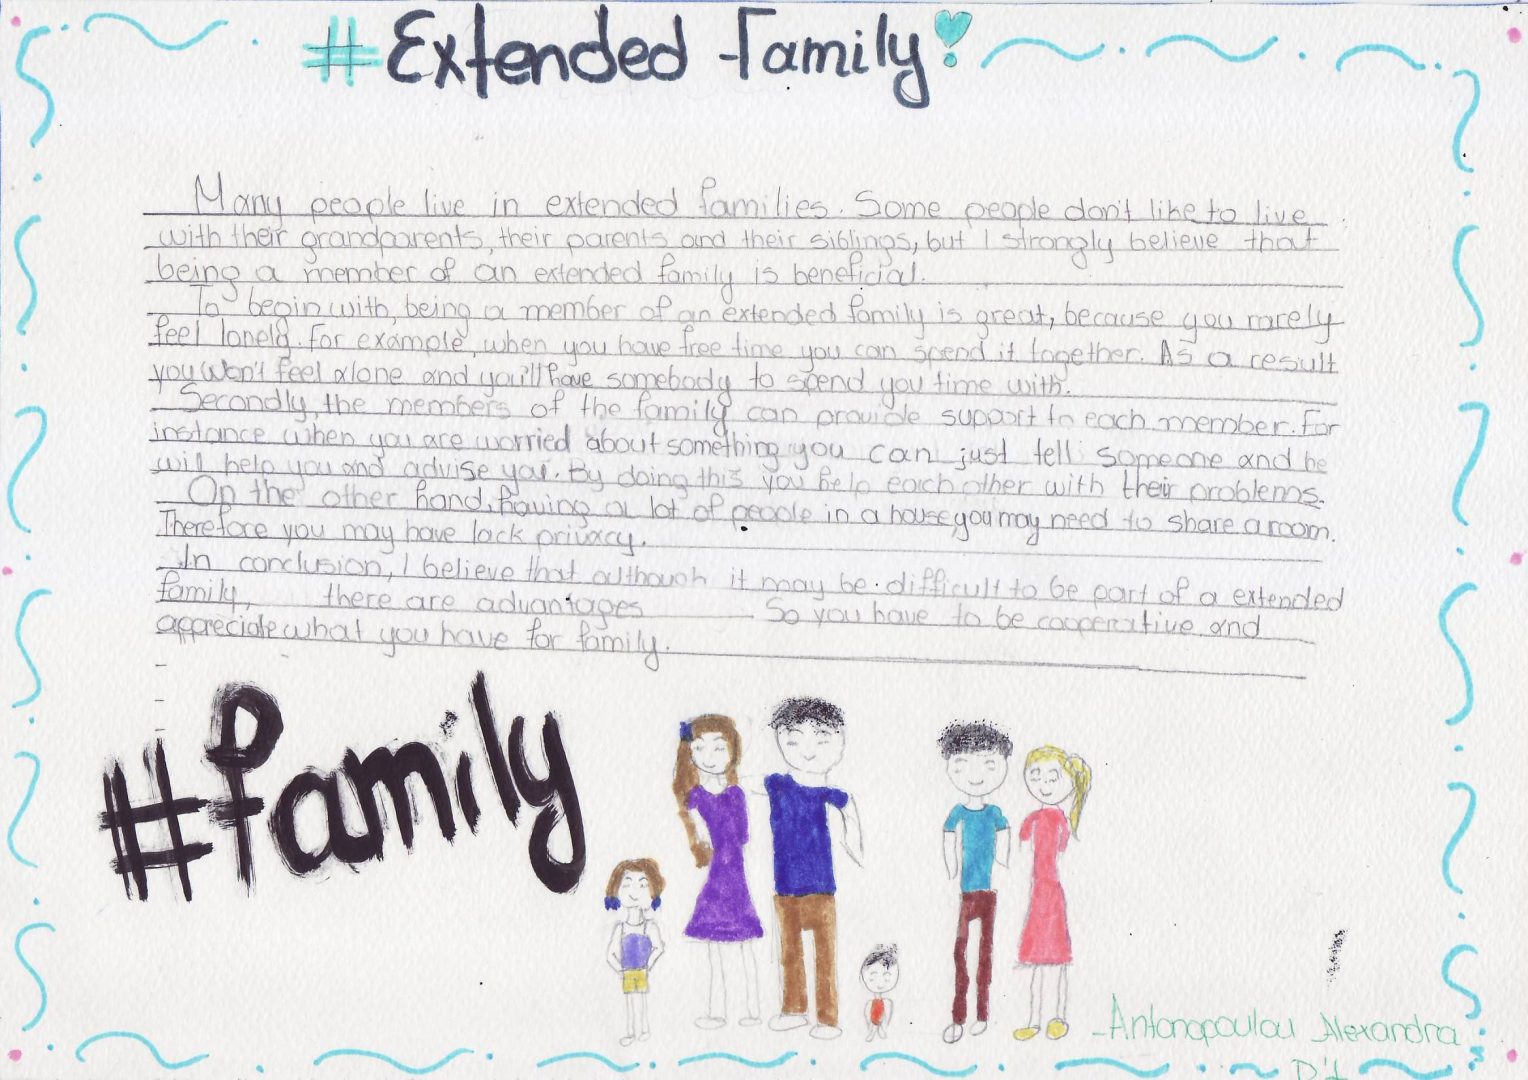 #Extended family!
Many people live in extended families. Some people don't like to live
with their grandparents, their parents and their siblings, but I strongly believe that
being a member of an extended family is beneficial.
To begin with, being a member of an extended family is great, because you rarely
feel lonely. For example, when you have free time you can spend it together. As a result
you won't feel alone and you'll have somebody to spend you time with.
Secondly, the members of the family can provide support to each member. For
instance when you are worried about something you can just tell someone and he
will help you and advise you. By doing this you help each other with their problems.
On the other hand, having a lot of people in a house, you may need to share a room.
Therefore you may have lack privacy.
In conclusion, I believe that although it may be difficult to be part of a extended
family, there are advantages So you have to be cooperative and
appreciate what you have for family.
#family
-Antonopoulou Alexandra